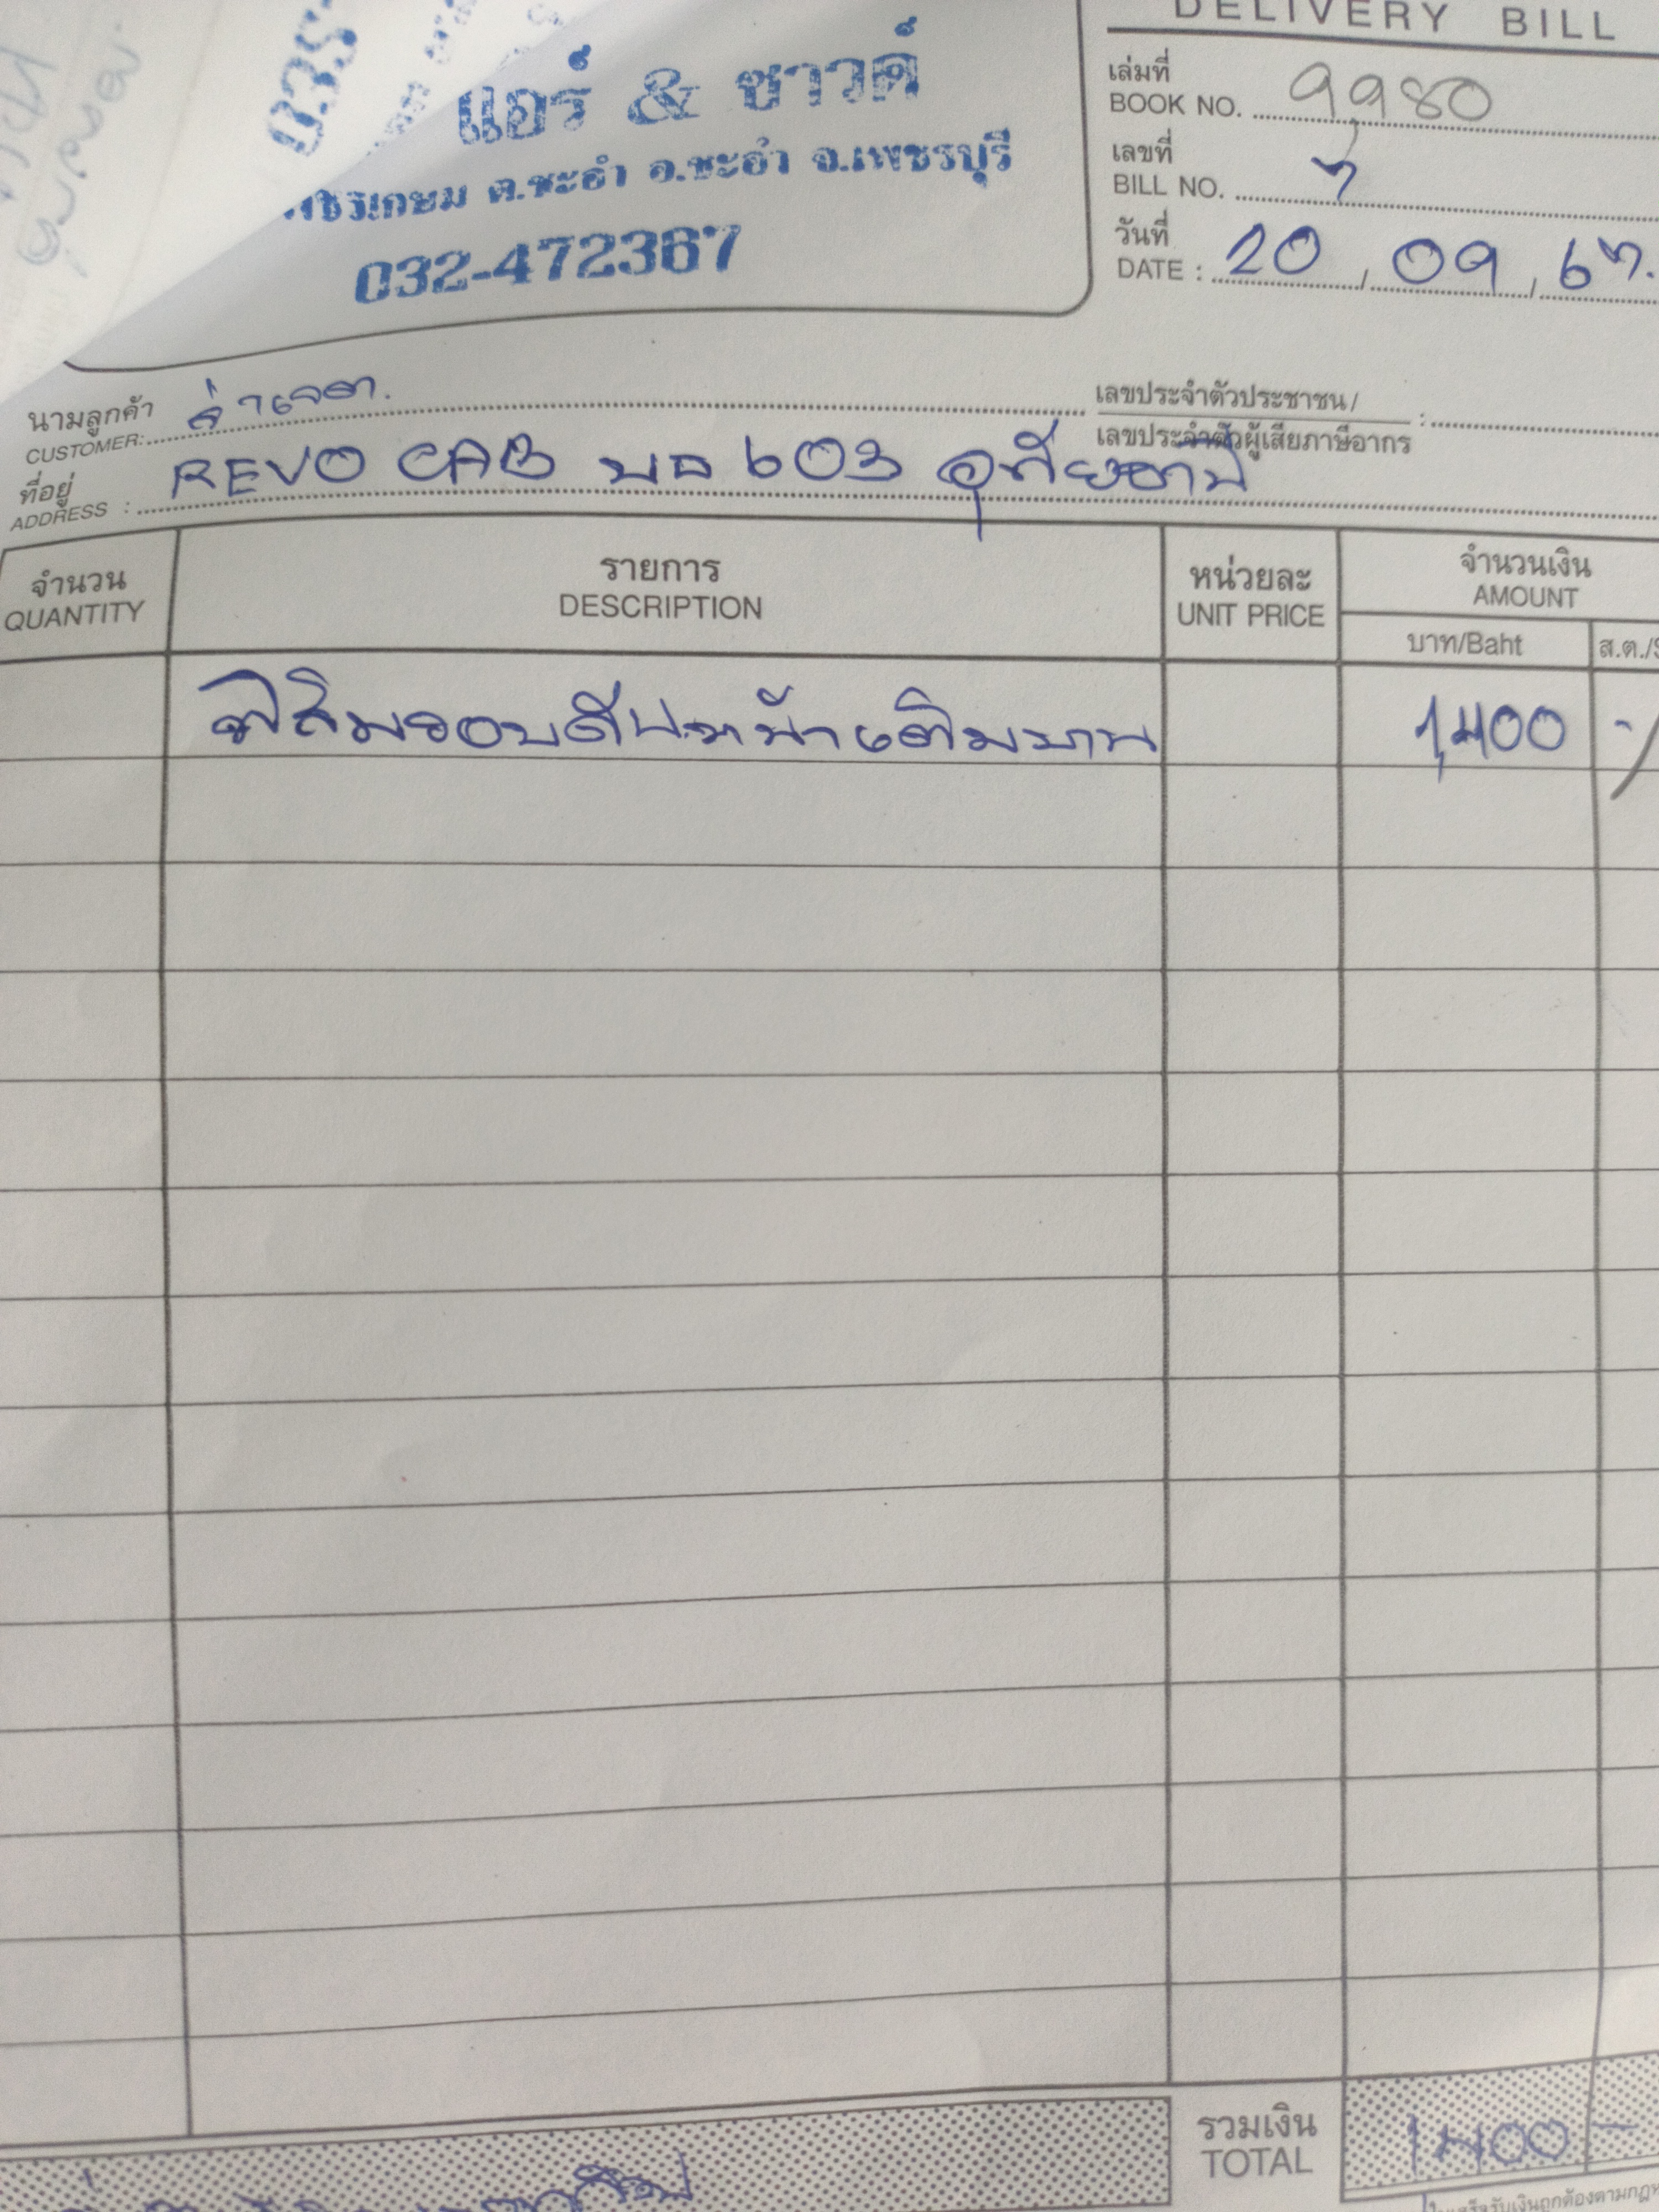 DELIVERY BILL
แอร์ & ซาวด์
เพชรเกษม ต.ชะอำ อ.ชะอำ จ.เพชรบุรี
032-472367
เล่มที่
BOOK NO. 9,980
เลขที่
BILL NO. 7
วันที่
DATE : 20 / 09 / 67.
นามลูกค้า
CUSTOMER:
เลขประจำตัวประชาชน/
เลขประจำตัวผู้เสียภาษีอากร :
ที่อยู่
ADDRESS : REVO CAB บฉ 603 อุทัยธานี
จำนวน
QUANTITY
รายการ
DESCRIPTION
หน่วยละ
UNIT PRICE
จำนวนเงิน
AMOUNT
บาท/Baht
ส.ต./S
ฟิล์มรอบคัน หน้าเต็มบาน 1,400 -
รวมเงิน
TOTAL
1400 -